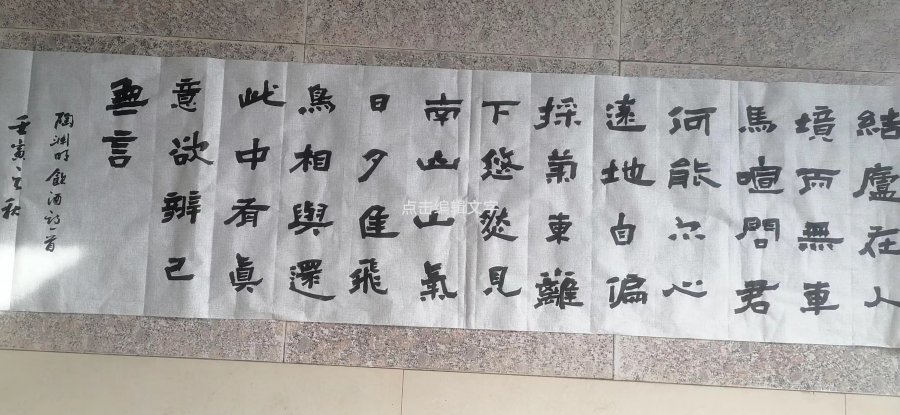 結廬在人
境而無車
馬喧問君
何能尔心
遠地自偏
採菊東籬
下悠然見
南山山氣
日夕佳飛
鳥相與還
此中有眞
意欲辨己
無言
陶渊明飲酒詩一首
壬寅之秋
点击编辑文字